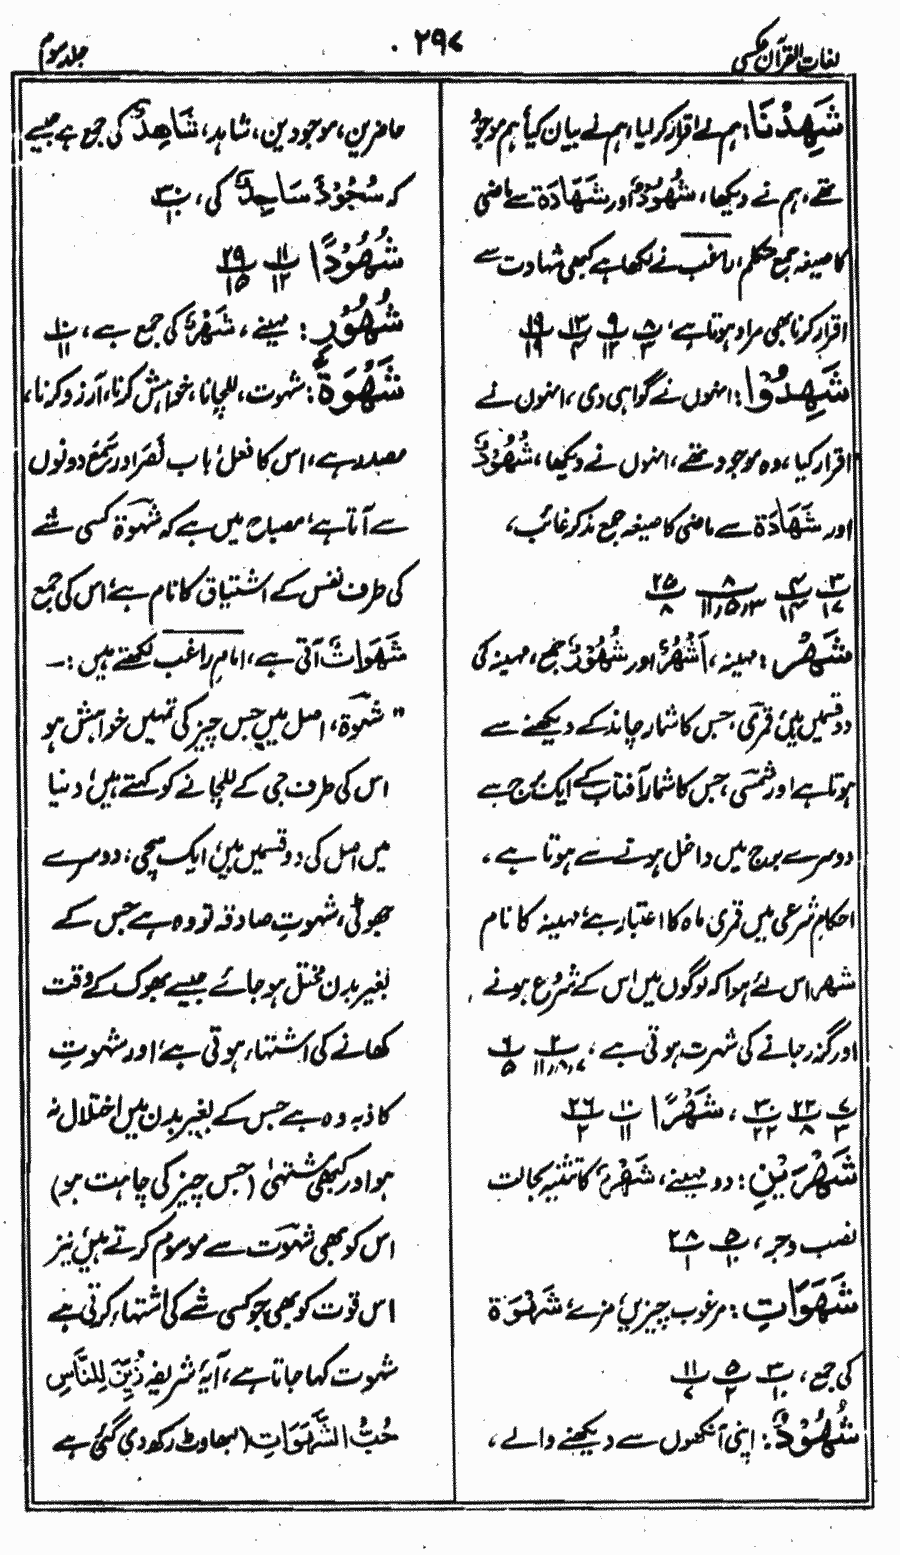 لغات القرآن عکسی
۲۹۷
جلد سوم
شَهِدْنَا: ہم نے اقرار کر لیا، ہم نے بیان کیا، ہم موجود
تھے، ہم نے دیکھا، شُهُوْدٌ اور شَهَادَة سے ماضی
کا صیغہ جمع متکلم، راغب نے لکھا ہے کبھی شہادت سے
اقرار کرنا بھی مراد ہوتا ہے، ۸/۳ ۹/۱۲ ۱۳/۴ ۱۹/۱۹
شَهِدُوْا: انہوں نے گواہی دی، انہوں نے
اقرار کیا، وہ موجود تھے، انہوں نے دیکھا، شُهُوْدٌ
اور شَهَادَة سے ماضی کا صیغہ جمع مذکر غائب،
۳/۱۷ ۴/۱۴ ۸/۳،۵،۱۱ ۲۵/۸
شَهْرٌ: مہینہ، اَشْهُرٌ اور شُهُوْرٌ جمع، مہینہ کی
دو قسمیں ہیں، قمری، جس کا شمار چاند کے دیکھنے سے
ہوتا ہے اور شمسی، جس کا شمار آفتاب کے ایک برج سے
دوسرے برج میں داخل ہونے سے ہوتا ہے،
احکامِ شرعی میں قمری ماہ کا اعتبار ہے، مہینہ کا نام
شہر اس لئے ہوا کہ لوگوں میں اس کے شروع ہونے
اور گذر جانے کی شہرت ہوتی ہے، ۲/۷،۸،۱۱ ۶/۵
۷/۳ ۲۲/۸ ۳۰/۲۲، شَهْرًا ۱۰/۱۱ ۲۶/۲
شَهْرَيْنِ: دو مہینے، شَهْرٌ کا تثنیہ بحالت
نصب وجر، ۵/۱۰ ۲۸/۱
شَهَوَاتِ: مرغوب چیزیں، مزے، شَهْوَة
کی جمع، ۳/۱۰ ۵/۲ ۱۱/۷
شُهُوْدٌ: اپنی آنکھوں سے دیکھنے والے،
حاضرین، موجودین، شاہد، شَاهِدٌ کی جمع ہے جیسے
کہ سُجُوْدٌ سَاجِدٌ کی، ۳۰/۱۰
شُهُوْدًا ۱۱/۱۲ ۲۹/۱۵
شُهُوْرِ: مہینے، شَهْرٌ کی جمع ہے، ۱۰/۱۱
شَهْوَةً: شہوت، للچانا، خواہش کرنا، آرزو کرنا،
مصدر ہے، اس کا فعل باب نَصَرَ اور سَمِعَ دونوں
سے آتا ہے، مصباح میں ہے کہ شہوۃ کسی شے
کی طرف نفس کے اشتیاق کا نام ہے، اس کی جمع
شَهَوَاتٌ آتی ہے، امام راغب لکھتے ہیں :۔
" شہوۃ، اصل میں جس چیز کی تمہیں خواہش ہو
اس کی طرف جی کے للچانے کو کہتے ہیں، دنیا
میں اصل کی دو قسمیں ہیں، ایک سچی، دوسرے
جھوٹی، شہوتِ صادقہ تو وہ ہے جس کے
بغیر بدن مختل ہو جائے جیسے بھوک کے وقت
کھانے کی اشتہاء ہوتی ہے، اور شہوتِ
کاذبہ وہ ہے جس کے بغیر بدن میں اختلال نہ
ہو اور کبھی مشتہیٰ (جس چیز کی چاہت ہو)
اس کو بھی شہوت سے موسوم کرتے ہیں، نیز
اس قوت کو بھی جو کسی شے کی اشتہاء کرتی ہے
شہوت کہا جاتا ہے، آیۂ شریفہ زُيِّنَ لِلنَّاسِ
حُبُّ الشَّهَوَاتِ (سجاوٹ رکھ دی گئی ہے